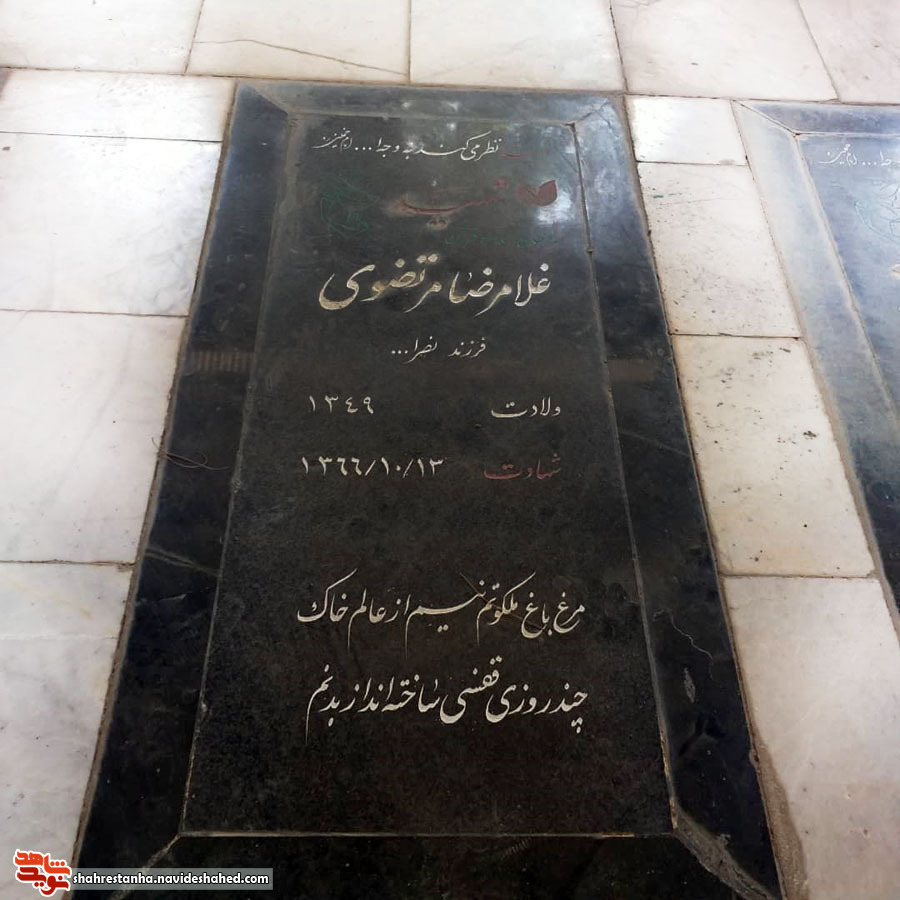 نظر می کند به وجه ا... امام خمینی
شهید
غلامرضا مرتضوی
فرزند نصرا...
ولادت ۱۳۴۹
شهادت ۱۳۶۶/۱۰/۱۳
مرغ باغ ملکوتم نیم از عالم خاک
چند روزی قفسی ساخته اند از بدنم
شاهد
نوید
shahrestanha.navideshahed.com